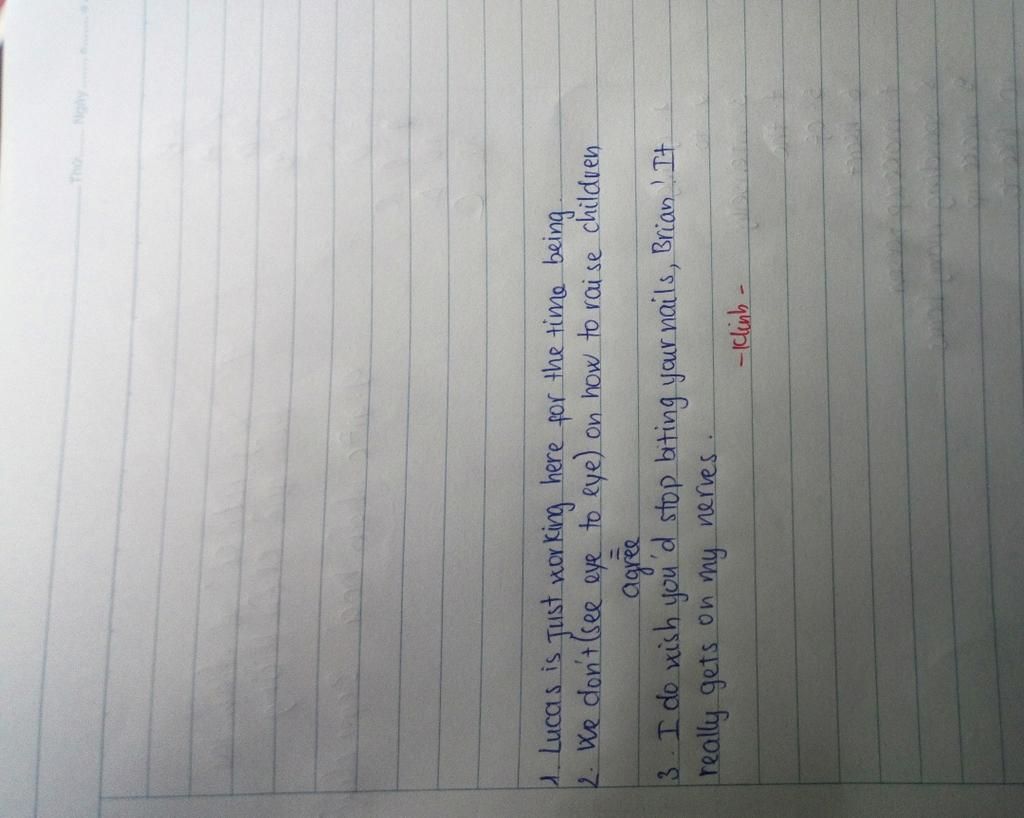 Thứ ..... Ngày .....
1. Lucas is just working here for the time being.
2. We don't (see eye to eye) on how to raise children
=
agree
3. I do wish you'd stop biting your nails, Brian! It
really gets on my nerves.